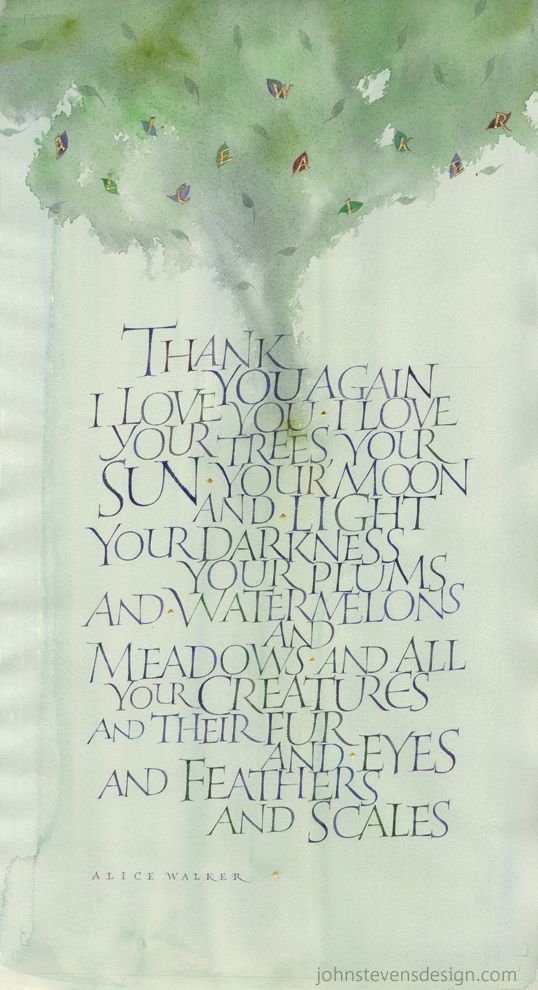 ALICE WALKER
THANK
YOU AGAIN
I LOVE YOU · I LOVE
YOUR TREES, YOUR
SUN · YOUR MOON
AND · LIGHT
YOUR DARKNESS
YOUR PLUMS
AND · WATERMELONS
AND
MEADOWS · AND ALL
YOUR CREATURES
AND THEIR FUR
AND · EYES
AND FEATHERS
AND SCALES
ALICE WALKER
johnstevensdesign.com